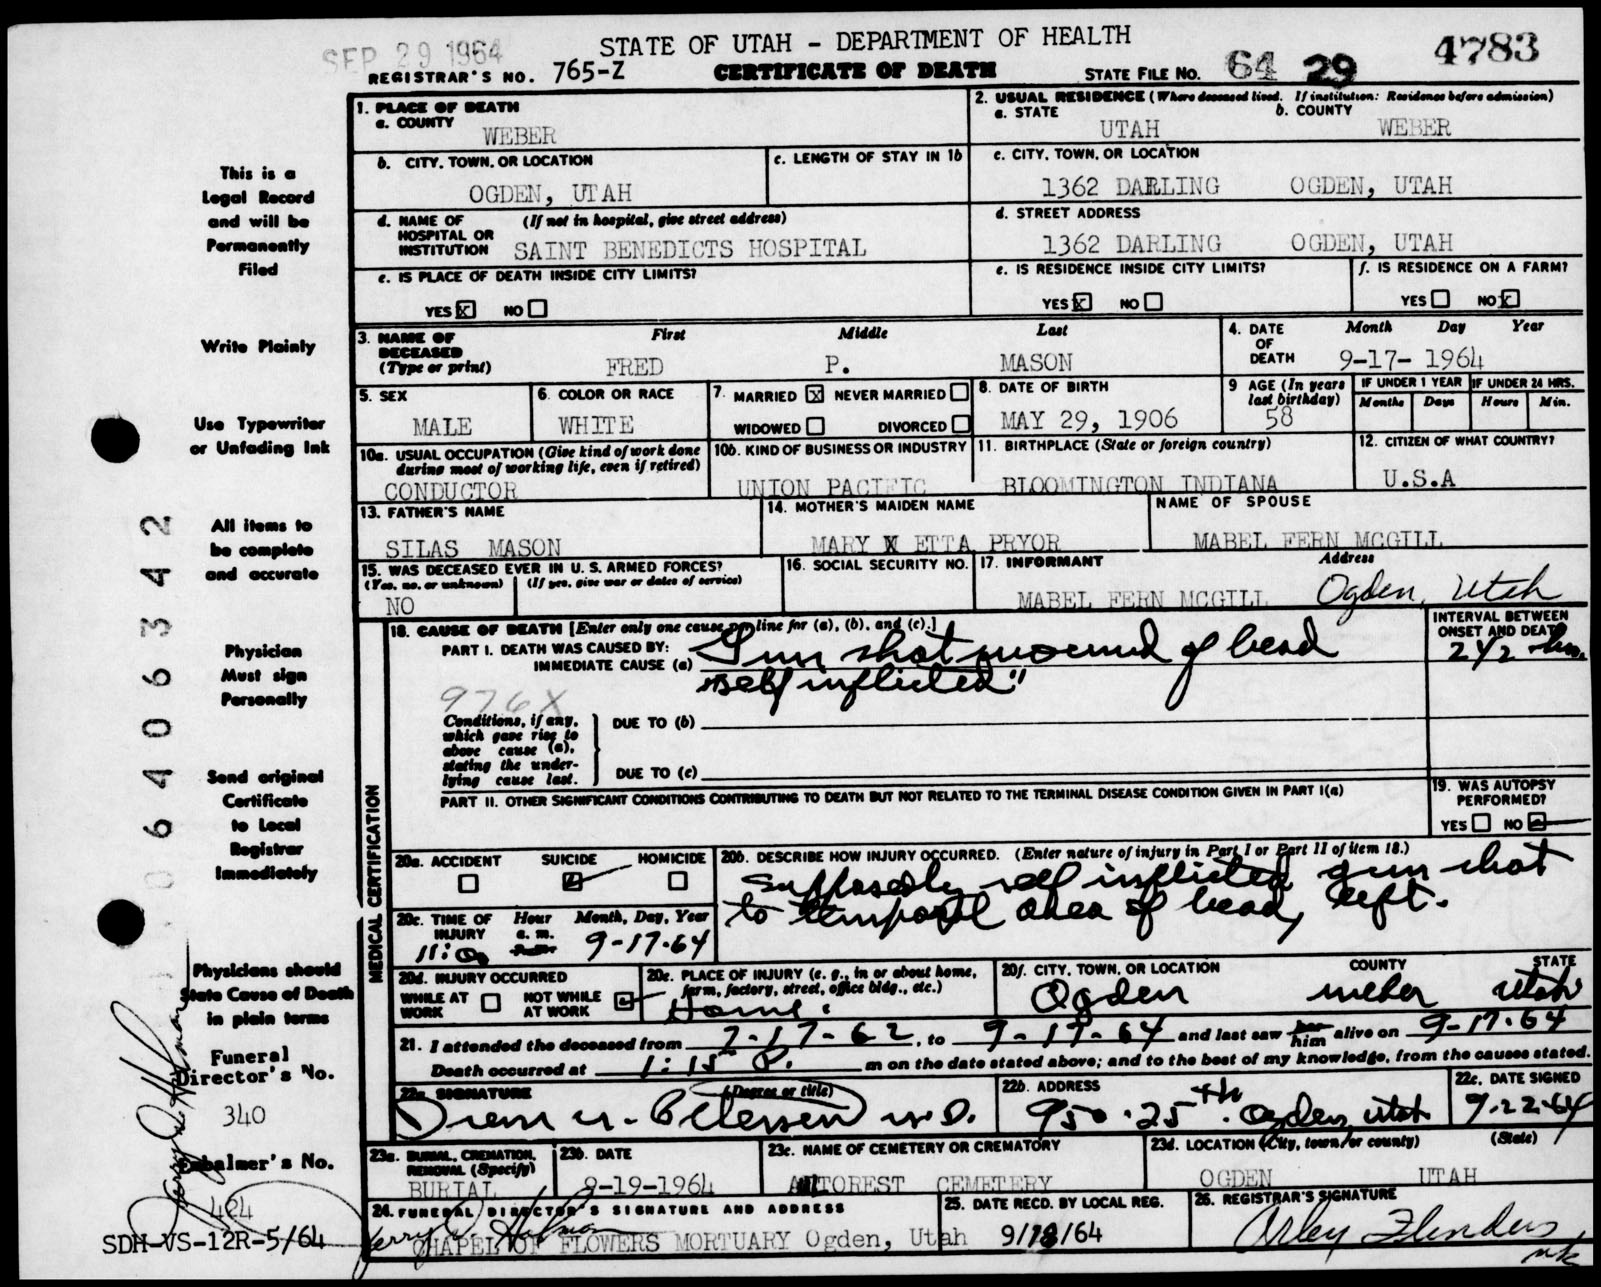 SEP 29 1964
STATE OF UTAH - DEPARTMENT OF HEALTH
REGISTRAR'S NO. 765-Z CERTIFICATE OF DEATH STATE FILE NO. 64 29 4783
This is a
Legal Record
and will be
Permanently
Filed
Write Plainly
Use Typewriter
or Unfading Ink
All items to
be complete
and accurate
Physician
Must sign
Personally
Send original
Certificate
to Local
Registrar
Immediately
Physicians should
State Cause of Death
in plain terms
Funeral
Director's No.
340
Embalmer's No.
424
SDH-VS-12R-5/64
06406342
1. PLACE OF DEATH
a. COUNTY
WEBER
2. USUAL RESIDENCE (Where deceased lived. If institution: Residence before admission)
a. STATE b. COUNTY
UTAH WEBER
b. CITY, TOWN, OR LOCATION
OGDEN, UTAH
c. LENGTH OF STAY IN 1b
c. CITY, TOWN, OR LOCATION
1362 DARLING OGDEN, UTAH
d. NAME OF HOSPITAL OR INSTITUTION (If not in hospital, give street address)
SAINT BENEDICTS HOSPITAL
d. STREET ADDRESS
1362 DARLING OGDEN, UTAH
e. IS PLACE OF DEATH INSIDE CITY LIMITS?
YES X NO
e. IS RESIDENCE INSIDE CITY LIMITS?
YES X NO
f. IS RESIDENCE ON A FARM?
YES NO X
3. NAME OF DECEASED (Type or print)
First Middle Last
FRED P. MASON
4. DATE OF DEATH Month Day Year
9-17- 1964
5. SEX
MALE
6. COLOR OR RACE
WHITE
7. MARRIED X NEVER MARRIED
WIDOWED DIVORCED
8. DATE OF BIRTH
MAY 29, 1906
9 AGE (In years last birthday)
58
IF UNDER 1 YEAR IF UNDER 24 HRS.
Months Days Hours Min.
10a. USUAL OCCUPATION (Give kind of work done during most of working life, even if retired)
CONDUCTOR
10b. KIND OF BUSINESS OR INDUSTRY
UNION PACIFIC
11. BIRTHPLACE (State or foreign country)
BLOOMINGTON INDIANA
12. CITIZEN OF WHAT COUNTRY?
U.S.A
13. FATHER'S NAME
SILAS MASON
14. MOTHER'S MAIDEN NAME
MARY ETTA PRYOR
NAME OF SPOUSE
MABEL FERN MCGILL
15. WAS DECEASED EVER IN U. S. ARMED FORCES?
(Yes, no, or unknown) (If yes, give war or dates of service)
NO
16. SOCIAL SECURITY NO.
17. INFORMANT Address
MABEL FERN MCGILL Ogden, Utah
MEDICAL CERTIFICATION
18. CAUSE OF DEATH [Enter only one cause per line for (a), (b), and (c).]
INTERVAL BETWEEN ONSET AND DEATH
PART I. DEATH WAS CAUSED BY:
IMMEDIATE CAUSE (a) Gun shot wound of head
"self inflicted"
2 1/2 hrs.
976X
Conditions, if any, which gave rise to above cause (a), stating the underlying cause last.
DUE TO (b)
DUE TO (c)
PART II. OTHER SIGNIFICANT CONDITIONS CONTRIBUTING TO DEATH BUT NOT RELATED TO THE TERMINAL DISEASE CONDITION GIVEN IN PART I(a)
19. WAS AUTOPSY PERFORMED?
YES NO
20a. ACCIDENT SUICIDE HOMICIDE
20b. DESCRIBE HOW INJURY OCCURRED. (Enter nature of injury in Part I or Part II of item 18.)
Supposedly self inflicted gun shot
to temporal area of head, left.
20c. TIME OF INJURY Hour a. m. p. m. Month, Day, Year
11:00 9-17-64
20d. INJURY OCCURRED
WHILE AT WORK NOT WHILE AT WORK
20e. PLACE OF INJURY (e. g., in or about home, farm, factory, street, office bldg., etc.)
Home.
20f. CITY, TOWN, OR LOCATION COUNTY STATE
Ogden Weber Utah
21. I attended the deceased from 7-17-62, to 9-17-64 and last saw her him alive on 9-17-64
Death occurred at 1:15 P. m on the date stated above; and to the best of my knowledge, from the causes stated.
22a. SIGNATURE (Degree or title)
Petersen M.D.
22b. ADDRESS
950-25th Ogden, Utah
22c. DATE SIGNED
9-22-64
23a. BURIAL, CREMATION, REMOVAL (Specify)
BURIAL
23b. DATE
9-19-1964
23c. NAME OF CEMETERY OR CREMATORY
AULTOREST CEMETERY
23d. LOCATION (City, town, or county) (State)
OGDEN UTAH
24. FUNERAL DIRECTOR'S SIGNATURE AND ADDRESS
CHAPEL OF FLOWERS MORTUARY Ogden, Utah
25. DATE RECD. BY LOCAL REG.
9/18/64
26. REGISTRAR'S SIGNATURE
Arley Flinders